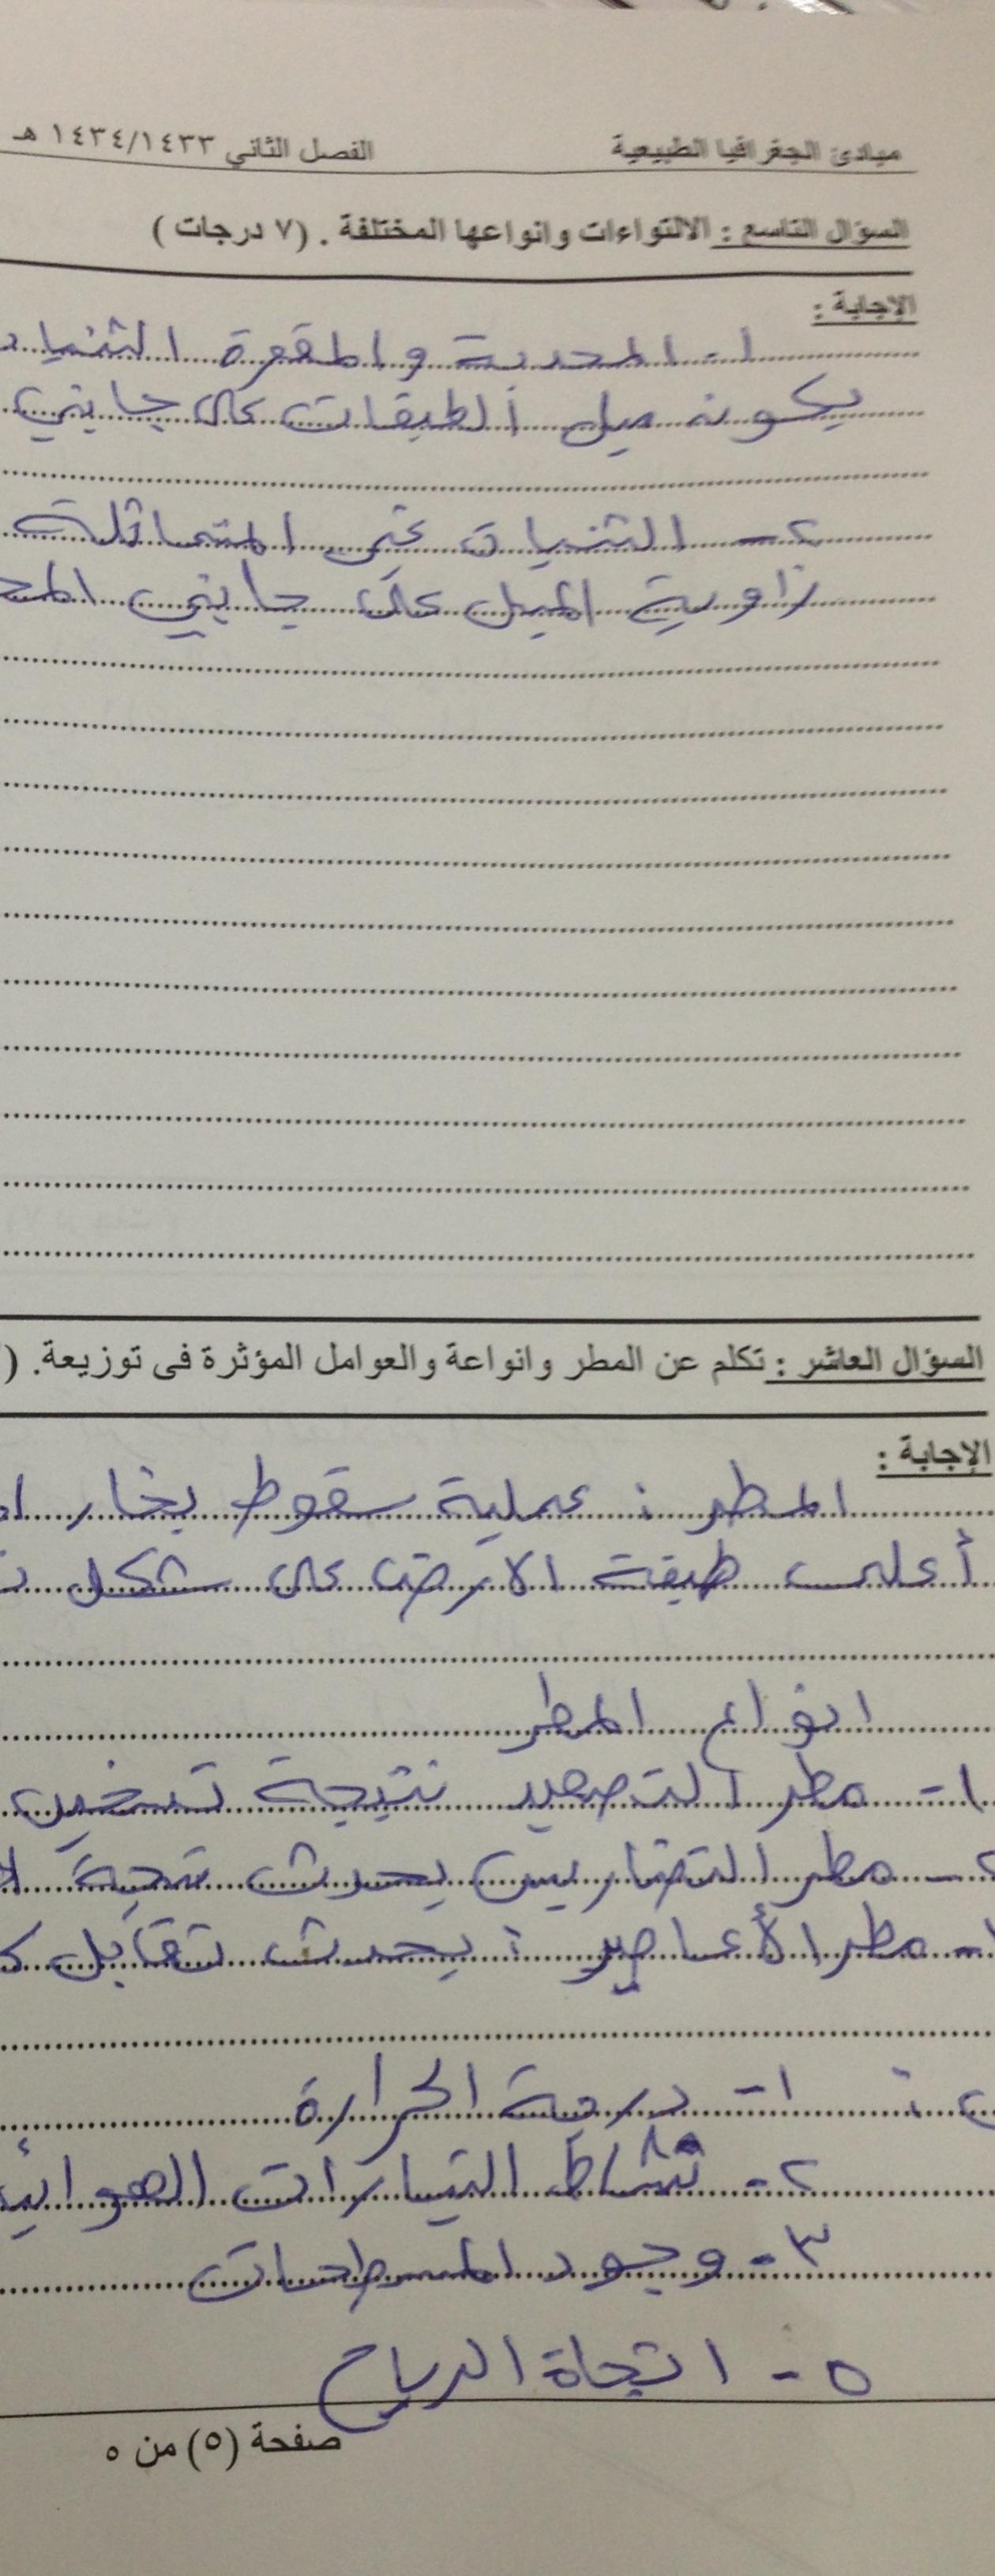 مبادئ الجغرافيا الطبيعية الفصل الثاني ١٤٣٤/١٤٣٣ هـ
السؤال التاسع : الالتواءات وانواعها المختلفة . (٧ درجات )
الإجابة :
١- المحدبة والمقعرة الثنيات
يكون ميل الطبقات على جانبي
٢- الثنيات غير المتماثلة
زاوية الميل على جانبي المح
السؤال العاشر : تكلم عن المطر وانواعة والعوامل المؤثرة فى توزيعة. (
الإجابة :
المطر : عملية سقوط بخار
أعلى طبقة الارض على شكل
انواع المطر
١- مطر التصعيد نتيجة تسخين
- مطر التضاريس يحدث نتيجة
- مطر الأعاصير : يحدث تقابل
١- درجة الحرارة
٢- نشاط التيارات الهوائية
٣- وجود المسطحات
٥- اتجاة الرياح
صفحة (٥) من ٥